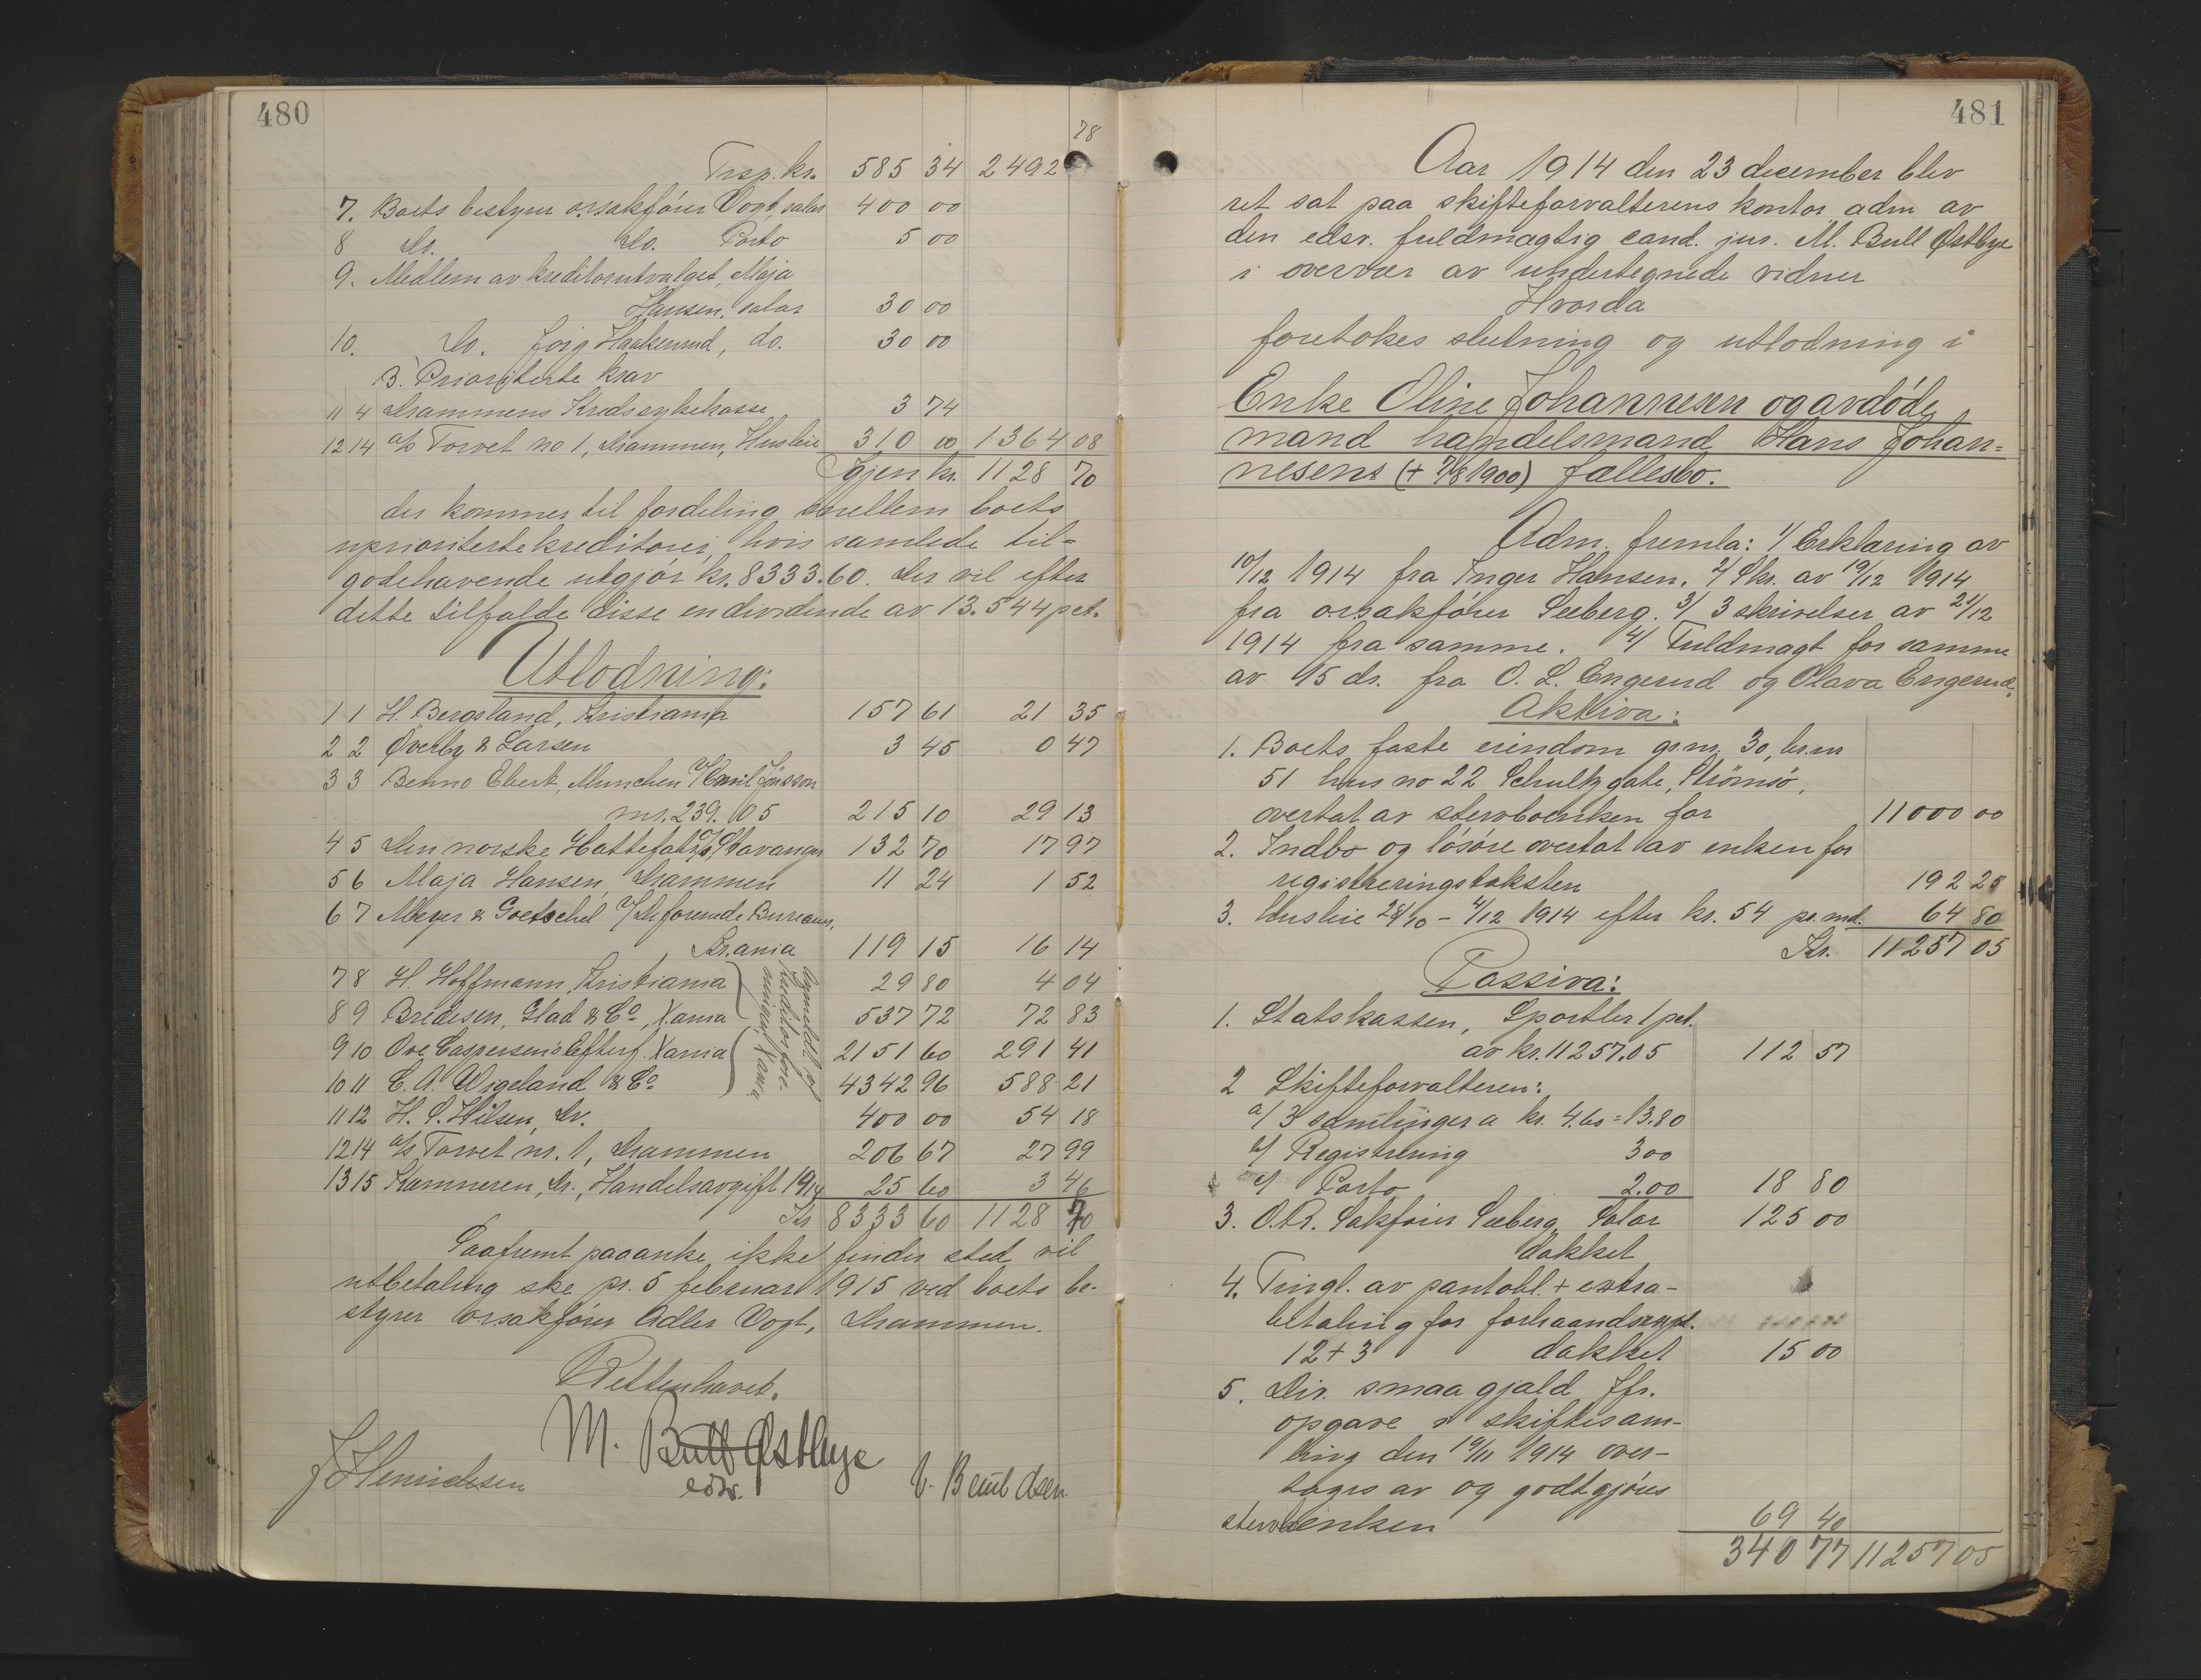 480
78
Trsp. kr. 585 34 2492
7. Boets bestyrer o.r.sakfører Vogt, salar 400 00
8 Do. Do. Porto 5 00
9. Medlem av kreditorutvalget, Maja
Hansen, salar 30 00
10. Do. Jörg Haakenrud, do. 30 00
B. Prioriterte krav
11 4 Drammens Kredssykekasse 3 74
12 14 a/s Torvet no 1, Drammen, Husleie 310 00 1364 08
Igjen kr. 1128 70
der kommer til fordeling mellem boets
uprioriterte kreditorer, hvis samlede til-
godehavende utgjör kr. 8333.60. Der vil efter
dette tilfalde disse en dividende av 13.544 pct.
Utlodning:
1 1 H. Bergsland, Kristiania 157 61 21 35
2 2 Øverby & Larsen 3 45 0 47
3 3 Benno Ebert, Munchen v/ Emil Jönsson
m. 239.05 215 10 29 13
4 5 Den norske Hattefabr. Stavanger 132 70 17 97
5 6 Maja Hansen, Drammen 11 24 1 52
6 7 Meyer & Goetschel v/ De forenede Bureauer,
Kr.ania 119 15 16 14
7 8 H. Hoffmann, Kristiania 29 80 4 04
8 9 Bredesen, Glad & Co, X.ania 537 72 72 83
9 10 Ove Caspersens Efterf. Xania 2151 60 291 41
10 11 C. A. Wigeland & Co 4342 96 588 21
Agmeldt v/ Kreditorfore-
ningen, Xania
11 12 H. S. Hilsen, Dr. 400 00 54 18
12 14 a/s Torvet nr. 1, Drammen 206 67 27 99
13 15 Kæmneren, Dr., Handelsavgift 1914 25 60 3 46
Kr 8333 60 1128 70
Saafremt paaanke ikke finder sted vil
utbetaling ske pr. 5 februar 1915 ved boets be-
styrer o.r.sakfører Adler Vogt, Drammen.
Retten hævet.
M. Bull Østbye
edsv.
J Henricksen
B. Berntdsen
481
Aar 1914 den 23 december blev
ret sat paa skifteforvalterens kontor adm av
den edsv. fuldmægtig cand. jur. M. Bull Østbye
i overvær av undertegnede vidner
Hvorda
foretokes slutning og utlodning i
Enke Oline Johannesen og avdöde
mand handelsmand Hans Johan=
nesens (+ 7/8 1900) fællesbo.
Adm. fremla: 1/ Erklæring av
10/12 1914 fra Inger Hansen. 2/ Skr. av 19/12 1914
fra o.r.sakfører Seeberg. 3/ 3 skrivelser av 21/12
1914 fra samme. 4/ Fuldmagt for samme
av 15 ds. fra O. L. Engerud og Olava Engerud.
Aktiva:
1. Boets faste eiendom gr.nr. 30, br.nr
51 hus no 22 Schultz gate, Strömsö,
overtat av stervboenken for 11000 00
2. Indbo og lösöre overtat av enken for
registreringstaksten 192 25
3. Husleie 28/10 - 4/12 1914 efter kr. 54 pr. md. 64 80
Kr. 11257 05
Passiva:
1. Statskassen, Sportler 1 pct.
av kr. 11257.05 112 57
2 Skifteforvalteren:
a/ 3 samlinger a kr. 4.60 = 13.80
b/ Registrering 3 00
c/ Porto 2.00 18 80
3. O.R. Sakfører Seeberg Salar 125 00
dækket
4. Tingl. av pantobl. + extra-
betaling for
12 + 3 dækket 15 00
5. Div. smaa gjæld Jfr.
opgave i skiftesam-
ling den 19/11 1914 over-
tages av og godtgjöres
stervboenken 69 40
340 77 11257 05